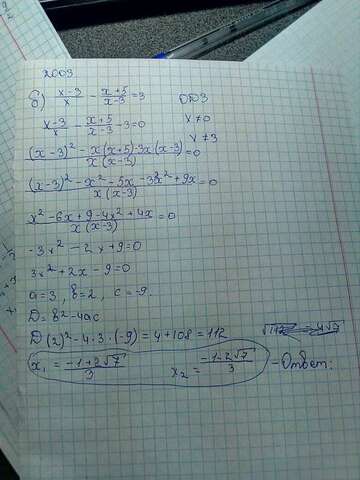 2003
б) (x-3)/x - (x+5)/(x-3) = 3 ОДЗ
(x-3)/x - (x+5)/(x-3) - 3 = 0 x ≠ 0
x ≠ 3
((x-3)² - x(x+5) - 3x(x-3))/(x(x-3)) = 0
((x-3)² - x² - 5x - 3x² + 9x)/(x(x-3)) = 0
(x² - 6x + 9 - 4x² + 4x)/(x(x-3)) = 0
-3x² - 2x + 9 = 0
3x² + 2x - 9 = 0
a = 3, b = 2, c = -9.
D = b² - 4ac
D (2)² - 4·3·(-9) = 4 + 108 = 112
x₁ = (-1+2√7)/3 x₂ = (-1-2√7)/3 - Ответ: